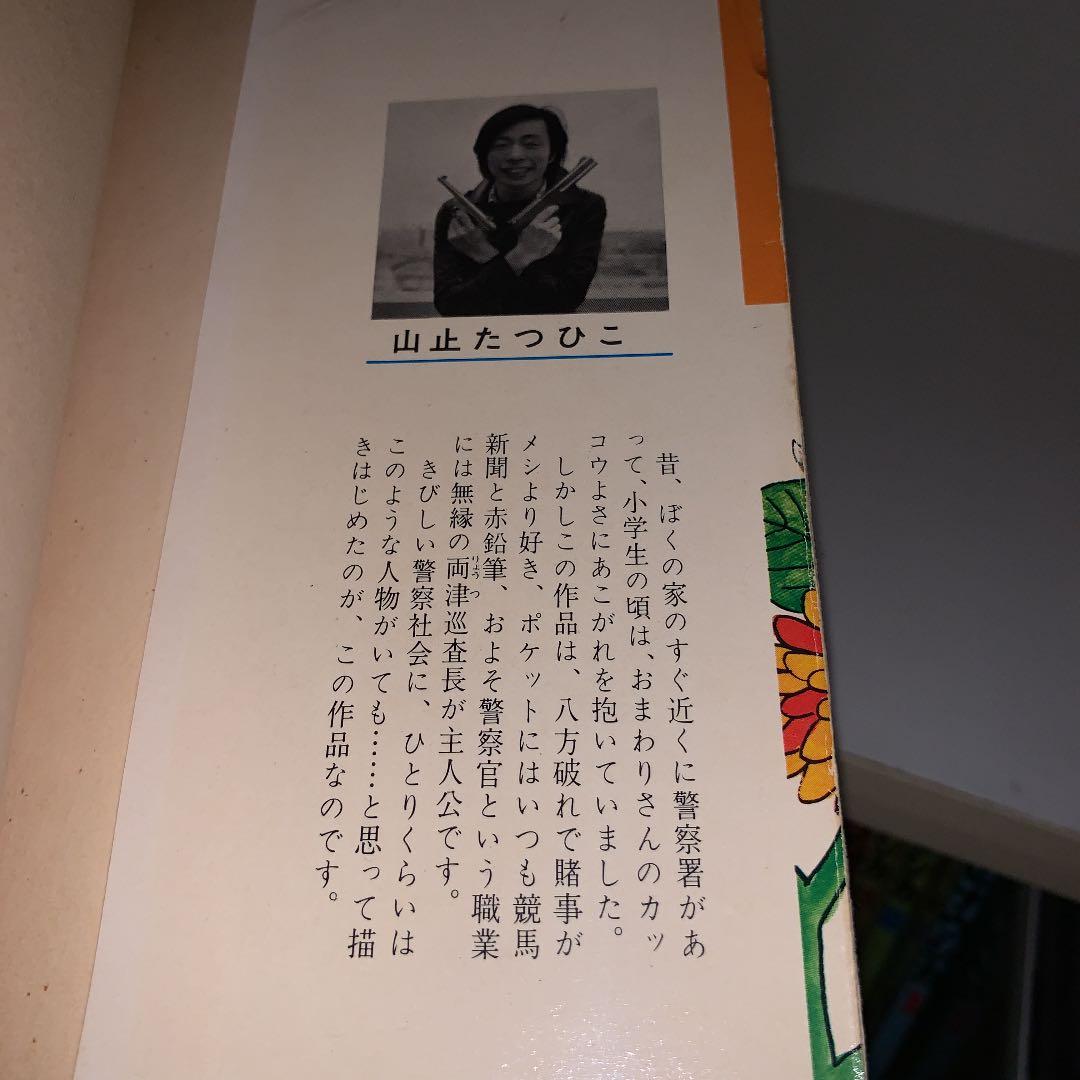 山止たつひこ
昔、ぼくの家のすぐ近くに警察署があ
って、小学生の頃は、おまわりさんのカッ
コウよさにあこがれを抱いていました。
しかしこの作品は、八方破れで賭事が
メシより好き、ポケットにはいつも競馬
新聞と赤鉛筆、およそ警察官という職業
には無縁の両津巡査長が主人公です。
りょうつ
きびしい警察社会に、ひとりくらいは
このような人物がいても……と思って描
きはじめたのが、この作品なのです。